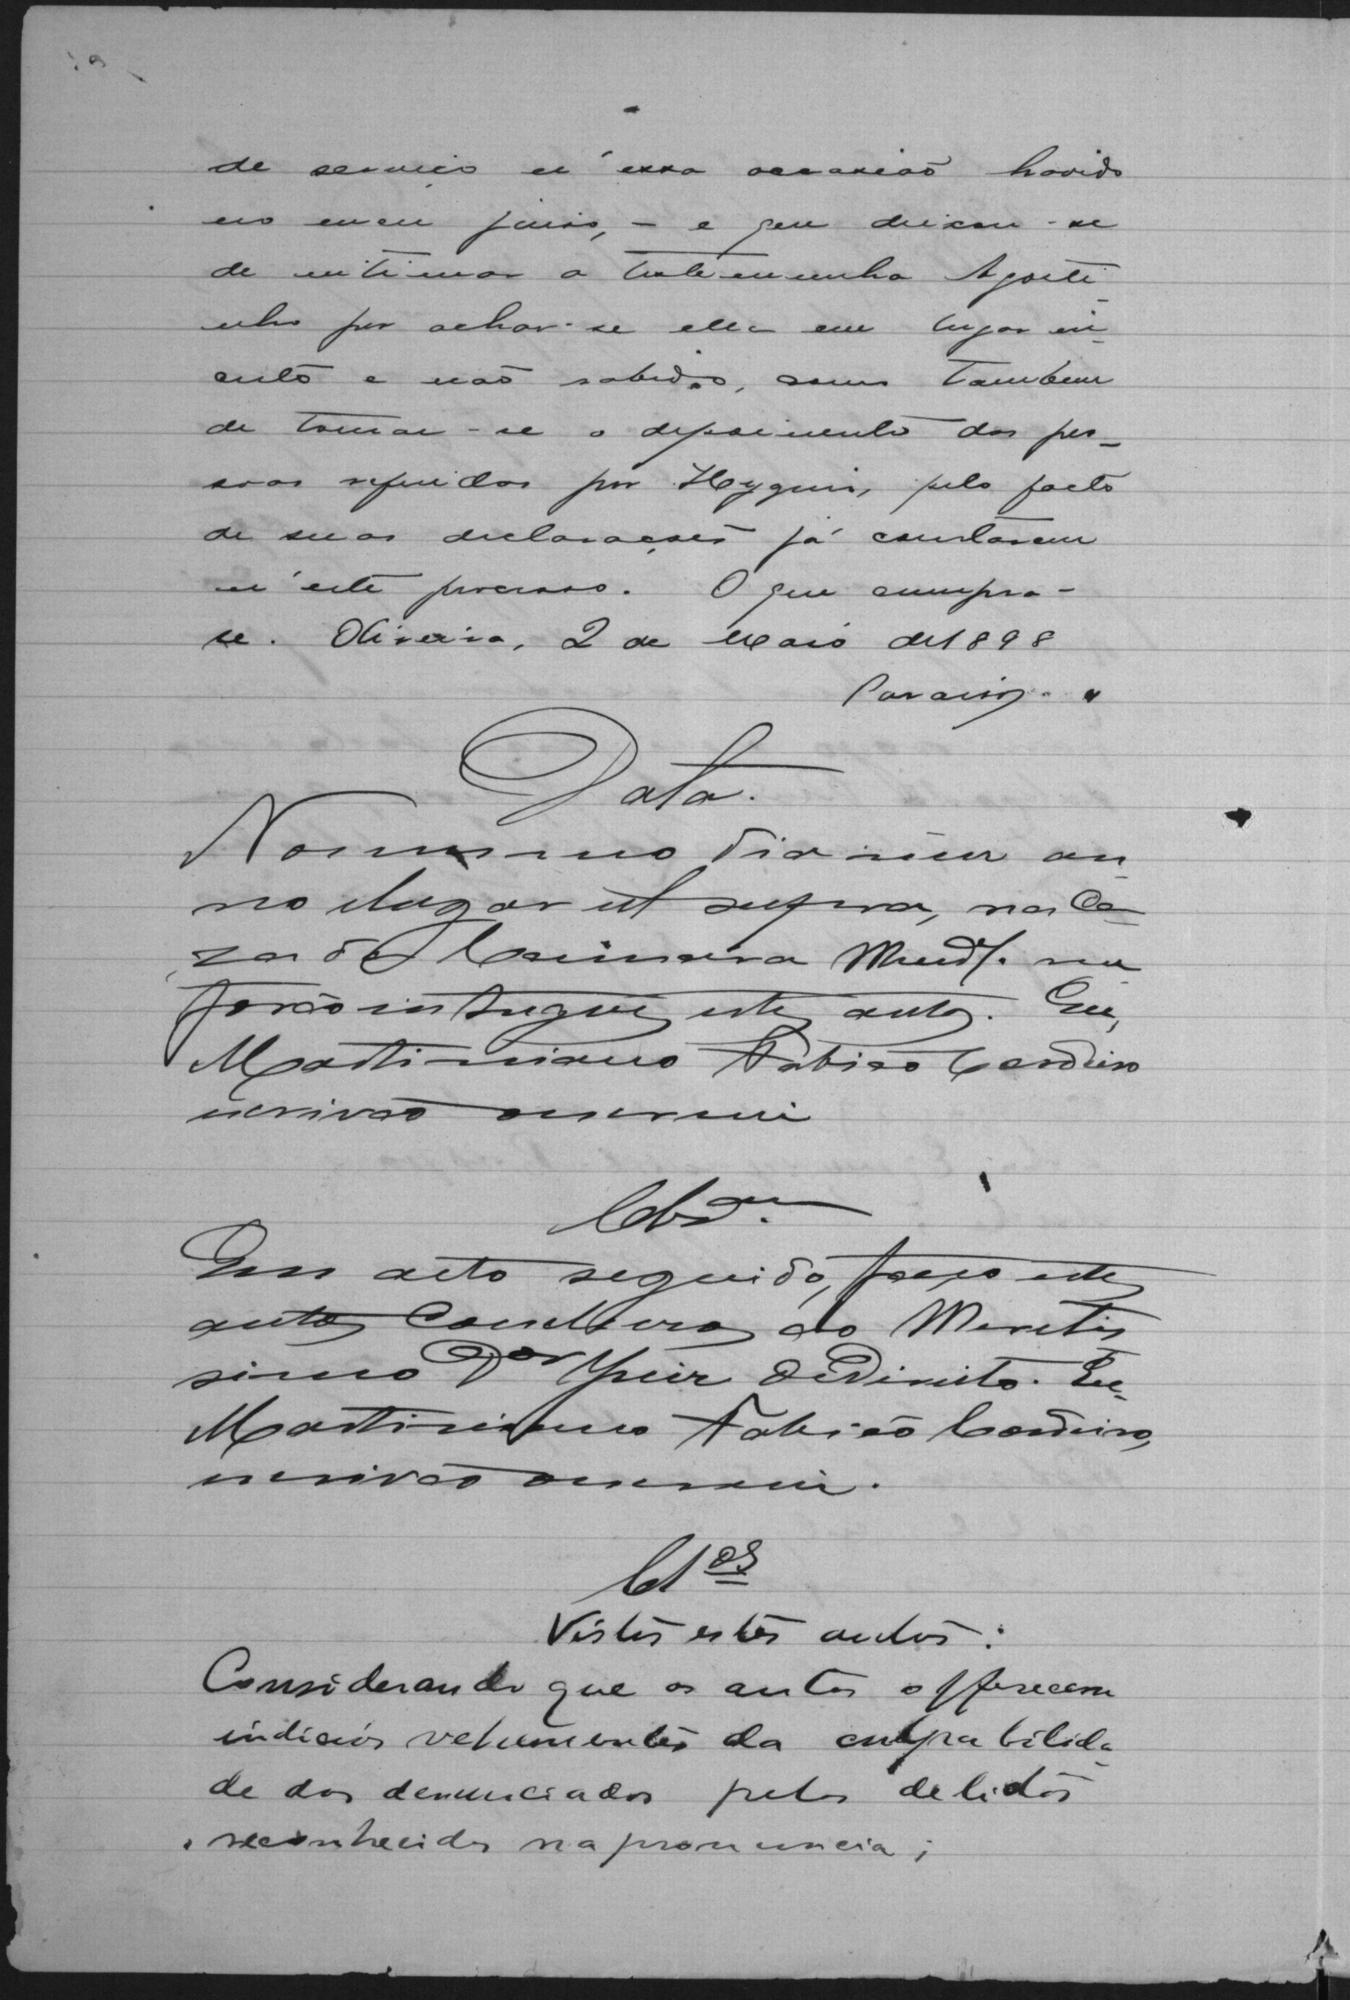 de serviço n'essa occasião havido
no meu juizo, - e que deixou-se
de intimar a testemunha Agosti-
nho por achar-se elle em lugar in-
certo e não sabido, como tambem
de tomar-se o depoimento das pes-
soas referidas por Hygino, pelo facto
de suas declarações já constarem
n'este processo. O que cumpra-
se. Oliveira, 2 de Maio de 1898
Paraiso.
Data.
No mesmo dia mez an-
no e lugar ut supra, na Ca-
za da Camara Mund.
forão intregues estes autos. Eu,
Martiniano Fabião Cordeiro
escrivão escrevi
Clsam.
Em acto seguido, faço estes
autos Conclusos ao Meretis
simo Dor Juiz de Direito. Eu
Martiniano Fabião Cordeiro,
escrivão escrevi.
Clos
Vistos estes autos:
Considerando que os autos offerecem
indicios vehementes da culpabilida-
de dos denunciados pelos delictos
reconhecidos na pronuncia;